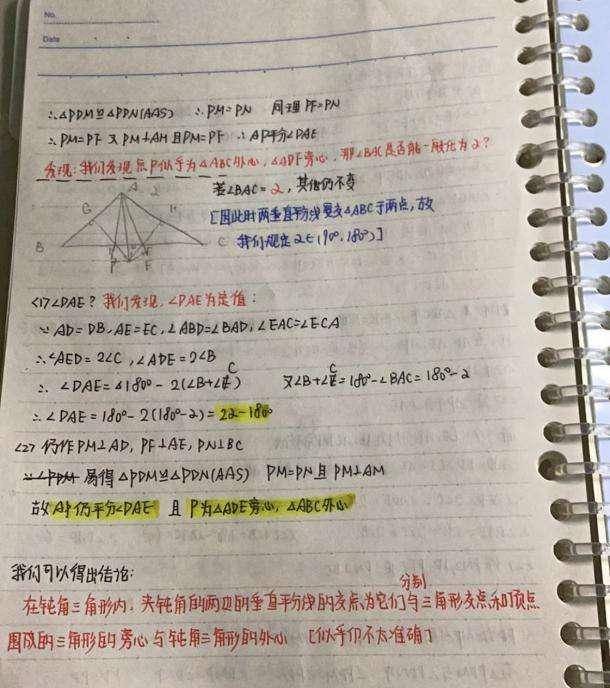 No.
Date
∴△PDM≌△PDN(AAS) ∴PM=PN 同理PF=PN
∴PM=PF 又PM⊥AM且PM=PF ∴AP平分∠DAE
发现:我们发现点P似乎为△ABC外心,△ADF旁心,那∠BAC是否能一般化为2?
若∠BAC=2,其他仍不变
[因此时两垂直平分线要交△ABC于两点,故
我们规定2∈(90°,180°)]
A 2
G H
B C
P F
<1>∠DAE?我们发现,∠DAE为定值:
∵AD=DB,AE=EC,∠ABD=∠BAD,∠EAC=∠ECA
∴∠AED=2∠C,∠ADE=2∠B
∴∠DAE=180°-2(∠B+∠C) 又∠B+∠C=180°-∠BAC=180°-2
∴∠DAE=180°-2(180°-2)=22-180°
<2>仍作PM⊥AD,PF⊥AE,PN⊥BC
易得△PDM≌△PDN(AAS) PM=PN且PM⊥AM
故AP仍平分∠DAE 且P为△ADE旁心,△ABC外心
我们可以得出结论:
分别
在钝角三角形内,夹钝角的两边的垂直平分线的交点为它们与三角形交点和顶点
围成的三角形的旁心与钝角三角形的外心 [似乎仍不太准确]